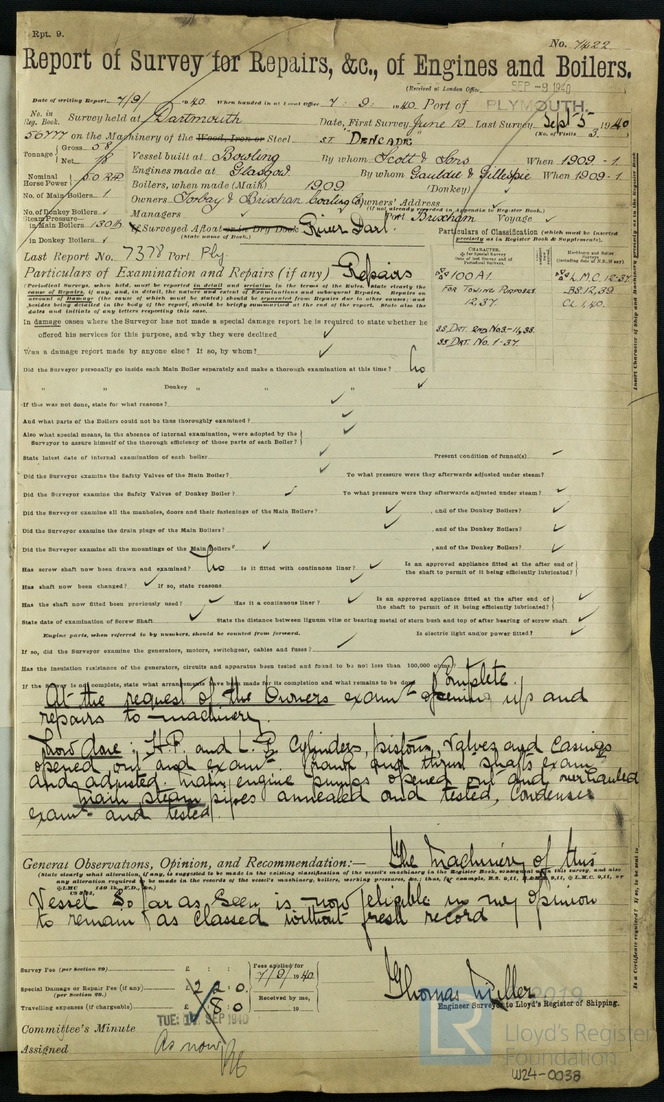 Rpt. 9.
No. 7422
Report of Survey for Repairs, &c., of Engines and Boilers.
(Received at London Office SEP -9 1940
Date of writing Report 7/9/ 1940 When handed in at Local Office 7. 9. 1940 Port of PLYMOUTH.
No. in Reg. Book. Survey held at Dartmouth Date, First Survey June 19 Last Survey Sept 5 1940
56777 on the Machinery of the Wood, Iron or Steel ST "DENCADE" (No. of Visits 3)
Tonnage Gross 58 Net 18
Vessel built at Bowling By whom Scott & Sons When 1909 - 1
Engines made at Glasgow By whom Gauldie & Gillespie When 1909 - 1
Nominal Horse Power 50 RHP
Boilers, when made (Main) 1909 (Donkey)
No. of Main Boilers 1
Owners Torbay & Brixham Coaling Co Owners' Address
(If not already recorded in Appendix to Register Book.)
No. of Donkey Boilers
Managers Port Brixham Voyage
Steam Pressure in Main Boilers 130 lb
If Surveyed Afloat or in Dry Dock River Dart.
(State name of Dock.)
in Donkey Boilers
Last Report No. 7378 Port Ply
Particulars of Examination and Repairs (if any) Repairs
Particulars of Classification (which must be inserted precisely as in Register Book & Supplements).
100A1
FOR TOWING PURPOSES
12.37
L.M.C. 12.37
B.S. 12.39
CL. 1.40.
SS DRT. 2ND NO3-11.33.
SS DRT. No. 1-37.
(Periodical Surveys, when held, must be reported in detail and seriatim in the terms of the Rules. State clearly the cause of Repairs, if any, and, in detail, the nature and extent of Examinations and subsequent Repairs. Repairs on account of Damage (the cause of which must be stated) should be separated from Repairs due to other causes; and besides being detailed in the body of the report, should be briefly summarised at the end of the report. State also the dates and initials of any letters respecting this case.
In damage cases where the Surveyor has not made a special damage report he is required to state whether he offered his services for this purpose, and why they were declined
Was a damage report made by anyone else? If so, by whom?
Did the Surveyor personally go inside each Main Boiler separately and make a thorough examination at this time? No
" " Donkey " " "
If this was not done, state for what reasons?
And what parts of the Boilers could not be thus thoroughly examined?
Also what special means, in the absence of internal examination, were adopted by the Surveyor to assure himself of the thorough efficiency of those parts of each Boiler?
State latest date of internal examination of each boiler Present condition of funnel(s)
Did the Surveyor examine the Safety Valves of the Main Boiler? To what pressure were they afterwards adjusted under steam?
Did the Surveyor examine the Safety Valves of Donkey Boiler? To what pressure were they afterwards adjusted under steam?
Did the Surveyor examine all the manholes, doors and their fastenings of the Main Boilers? , and of the Donkey Boilers?
Did the Surveyor examine the drain plugs of the Main Boilers? , and of the Donkey Boilers?
Did the Surveyor examine all the mountings of the Main Boilers? , and of the Donkey Boilers?
Has screw shaft now been drawn and examined? No Is it fitted with continuous liner? Is an approved appliance fitted at the after end of the shaft to permit of it being efficiently lubricated?
Has shaft now been changed? If so, state reasons
Has the shaft now fitted been previously used? Has it a continuous liner? Is an approved appliance fitted at the after end of the shaft to permit of it being efficiently lubricated?
State date of examination of Screw Shaft State the distance between lignum vitæ or bearing metal of stern bush and top of after bearing of screw shaft
Engine parts, when referred to by numbers, should be counted from forward. Is electric light and/or power fitted?
If so, did the Surveyor examine the generators, motors, switchgear, cables and fuses?
Has the insulation resistance of the generators, circuits and apparatus been tested and found to be not less than 100,000 ohms?
If the Survey is not complete, state what arrangements have been made for its completion and what remains to be done Complete.
At the request of the Owners examd opening up and
repairs to machinery.
Now done: H.P. and L.P. Cylinders, pistons, valves and casings
opened out and examd. Crank and thrust shafts examd
and adjusted. Main engine pumps opened out and overhauled
main steam pipes annealed and tested, Condenser
examd and tested.
General Observations, Opinion, and Recommendation:— The Machinery of this
(State clearly what alteration, if any, is suggested to be made in the existing classification of the vessel's machinery in the Register Book, consequent upon this survey, and also any alteration required to be made in the records of the vessel's machinery, boilers, working pressures, &c., thus, for example, B.S. 9,11,
Vessel So far as Seen is now eligible in my opinion
to remain as classed without fresh record
Survey Fee (per Section 29) £ : :
Special Damage or Repair Fee (if any) £ 2 : 2 : 0.
(per Section 29.)
Travelling expenses (if chargeable) £ : 8 : 0
Fees applied for 7/9/ 1940
Received by me, 19
Thomas Miller
Engineer Surveyor to Lloyd's Register of Shipping.
Committee's Minute TUE. 17 SEP 1940
Assigned As now
© 2019
LR
Lloyd's Register
Foundation
W24-0038